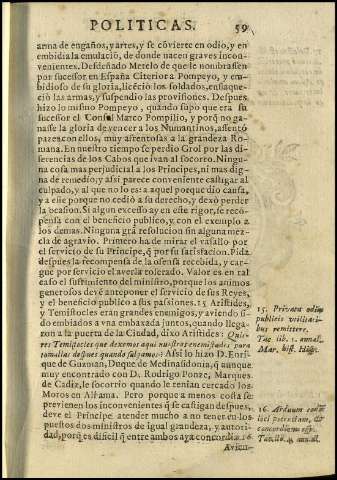 POLITICAS. 59
arma de engaños, y artes, y se cõvierte en odio, y en
embidia la emulaciõ, de donde nacen graves incon-
venientes. Desdeñado Metelo de que le nonbrassen
por sucessor en España Citerior a Pompeyo, y em-
bidioso de su gloria, licéciò los soldados, enflaque-
ciò las armas, y suspendio las provisiones. Despues
hizo lo mismo Pompeyo, quando supo que era su
sucessor el Consul Marco Pompilio, y porq̃ no ga-
nasse la gloria de vencer a los Numantinos, assentó
pazes con ellos, muy afrentosas a la grandeza Ro-
mana. En nuestro tiempo se perdio Grol por las di-
ferencias de los Cabos que ivan al socorro. Ningu-
na cosa mas perjudicial a los Principes, ni mas dig-
na de remedio, y assi parece conveniente castigar al
culpado, y al que no lo es: a aquel porque dio causa,
y a este porque no cedió a su derecho, y dexó perder
la ocasion. Si algun excesso ay en este rigor, se reco-
pensa con el beneficio publico, y con el exemplo a
los demas. Ninguna grã resolucion sin alguna mez-
cla de agravio. Primero ha de mirar el vasallo por
el servicio de su Principe, q̃ por su satisfacion. Pida
despues la recompensa de la ofensa recebida, y car-
gue por servicio el averla tolerado. Valor es en tal
caso el sufrimiento del ministro, porque los animos
generosos devé anteponer el servicio de sus Reyes,
y el beneficio publico a sus passiones. 15 Aristides,
y Temistocles eran grandes enemigos, y aviendo si-
do embiados a vna embaxada juntos, quando llega-
ron a la puerta de la Ciudad, dixo Aristides: Quie-
res Temistocles que dexemos aqui nuestras enemistades para
tomallas despues quando salgamos? Assi lo hizo D. Enri-
que de Guzman, Duque de Medinasidonia, q̃ aunque
muy encontrado con D. Rodrigo Ponze, Marques
de Cadiz, le socorrio quando le tenian cercado los
Moros en Alfama. Pero porque a menos costa se
previenen los inconvenientes q̃ se castigan despues,
deve el Principe atender mucho a no tener en los
puestos dos ministros de igual grandeza, y autori-
dad, porq̃ es dificil q̃ entre ambos aya concordia. 16
Avien-
15. Privata odia
publicis vtilitati-
bus remittere.
Tac. lib. 1. annal.
Mar. hist. Hisp.
16. Arduum eodem
loci potentiam, &
concordiam esse.
Tac. lib. 4. annal.